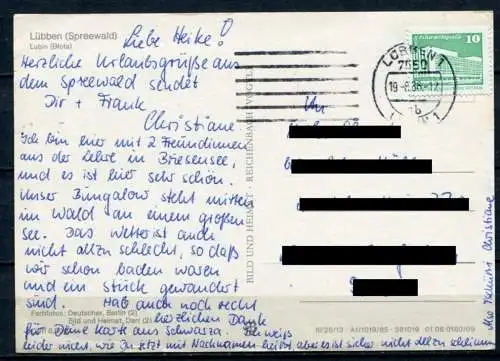 Lübben (Spreewald)
Lubin (Błota)
Liebe Heike!
Herzliche Urlaubsgrüße aus
dem Spreewald sendet
Dir + Frank
Christiane
Ich bin hier mit 2 Freundinnen
aus der Lehre in Briesensee,
und es ist hier sehr schön.
Unser Bungalow steht mitten
im Wald an einem großen
See. Das Wetter ist auch
nicht allzu schlecht, so daß
wir schon baden waren
und ein Stück gewandert
sind. Hab auch noch recht
herzlichen Dank
für Deine Karte aus Schwarza. weiß
leider nicht, wie Du jetzt mit Nachnamen heißt, aber es ist sicher nicht allzu schlimm
Christiane
Farbfotos: Deutscher, Berlin (2)
Bild und Heimat, Darr (2)
BILD UND HEIMAT REICHENBACH (VOGTL)
10
LÜBBEN 1
7550
19.-6.86.-12